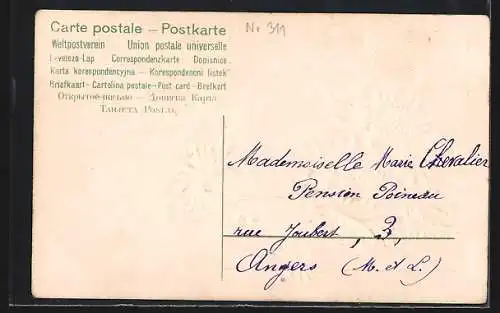 Carte postale — Postkarte
Nr 311
Weltpostverein Union postale universelle
Levelezö-Lap Correspondenzkarte Dopisnice
Karta korespondencyjna — Korespondenčni listek
Briefkaart - Cartolina postale - Post card - Brefkort
Открытое письмо — Дописна Карта
Tarjeta Postal
Mademoiselle Marie Chevalier
Pension Poineau
rue Joubert, 3,
Angers (M. et L.)